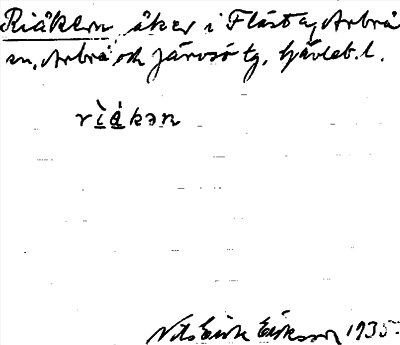 Riåkern, åker i Flästa, Arbrå
sn, Arbrå och Järvsö tg, Gävleb. l.
rìákən
Nils Erik Eriksson 1935